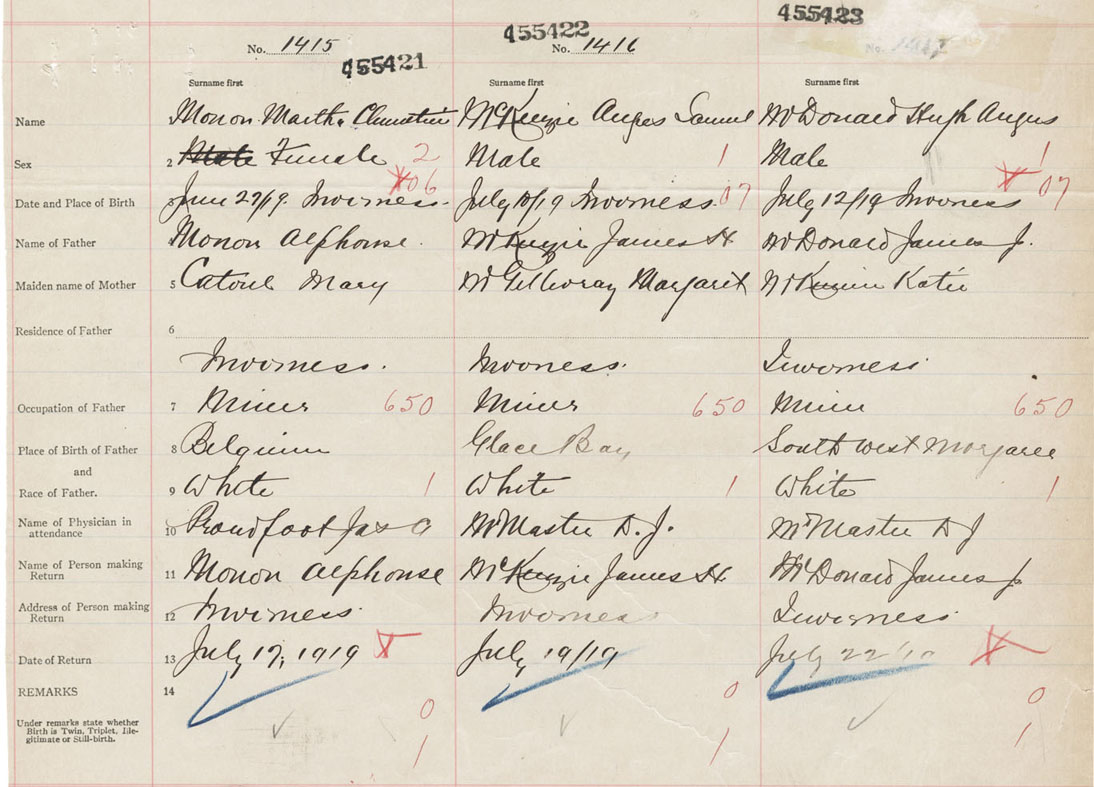 455421 455422 455423
No. 1415 No. 1416 No. 1417
Surname first Surname first Surname first
Name Monon Martha McKenzie Angus Samuel McDonald Hugh Angus
Sex 2 Male Female 2 Male 1 Male 1
Date and Place of Birth 3 June 27/19 Inverness. 06 July 10/19 Inverness. 07 July 12/19 Inverness 07
Name of Father Monon Alphonse. McKenzie James H McDonald James J.
Maiden name of Mother 5 Mary McGillivray Margaret Katie
Residence of Father 6
Inverness. Inverness. Inverness
Occupation of Father 7 Miner 650 Miner 650 Miner 650
Place of Birth of Father 8 Belgium Glace Bay South West Margaree
and
Race of Father. 9 White 1 White 1 White 1
Name of Physician in attendance 10 Proudfoot Jas A McMaster D. J. McMaster D J
Name of Person making Return 11 Monon Alphonse McKenzie James H. McDonald James J
Address of Person making Return 12 Inverness Inverness Inverness
Date of Return 13 July 17, 1919 July 19/19 July 22/19
REMARKS 14 0 0 0
Under remarks state whether Birth is Twin, Triplet, Ille-
gitimate or Still-birth. 1 1 1